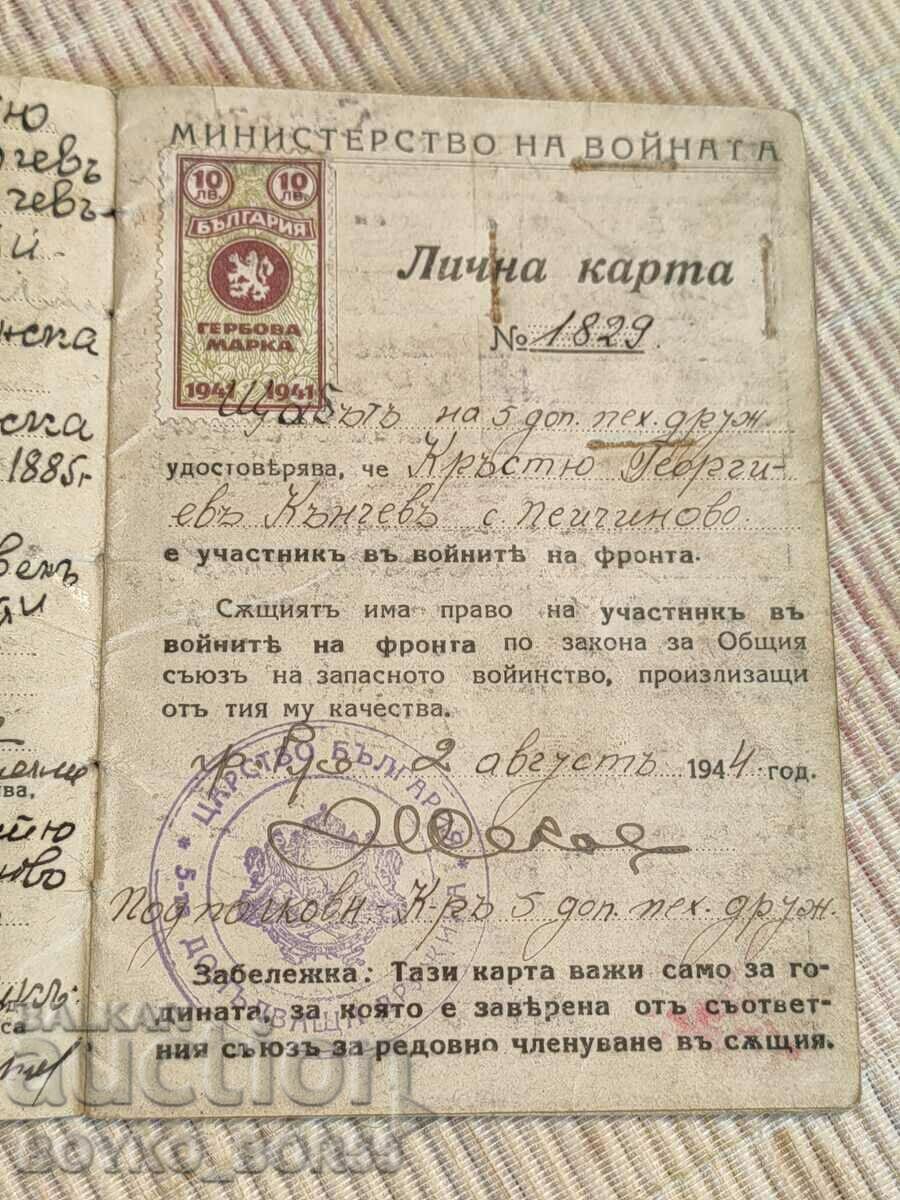 1885г
МИНИСТЕРСТВО НА ВОЙНАТА
10 ЛВ. 10 ЛВ.
БЪЛГАРИЯ
ГЕРБОВА
МАРКА
1941 1941
Лична карта
№ 1829.
Щабътъ на 5 доп. пех. друж.
удостовѣрява, че Кръстю Георги-
евъ Кънчевъ с. Пейчиново
е участникъ въ войнитѣ на фронта.
Сѫщиятъ има право на участникъ въ
войнитѣ на фронта по закона за Общия
съюзъ на запасното войнство, произлизащи
отъ тия му качества.
гр. Русе 2 августъ 1944 год.
ЦАРСТВО БЪЛГАРИЯ
Подполковн. К-ръ 5 доп. пех. друж.
Забележка: Тази карта важи само за го-
дината, за която е завѣрена отъ съответ-
ния съюзъ за редовно членуване въ сѫщия.
BALKAN
auction
BOYKO_BOR55